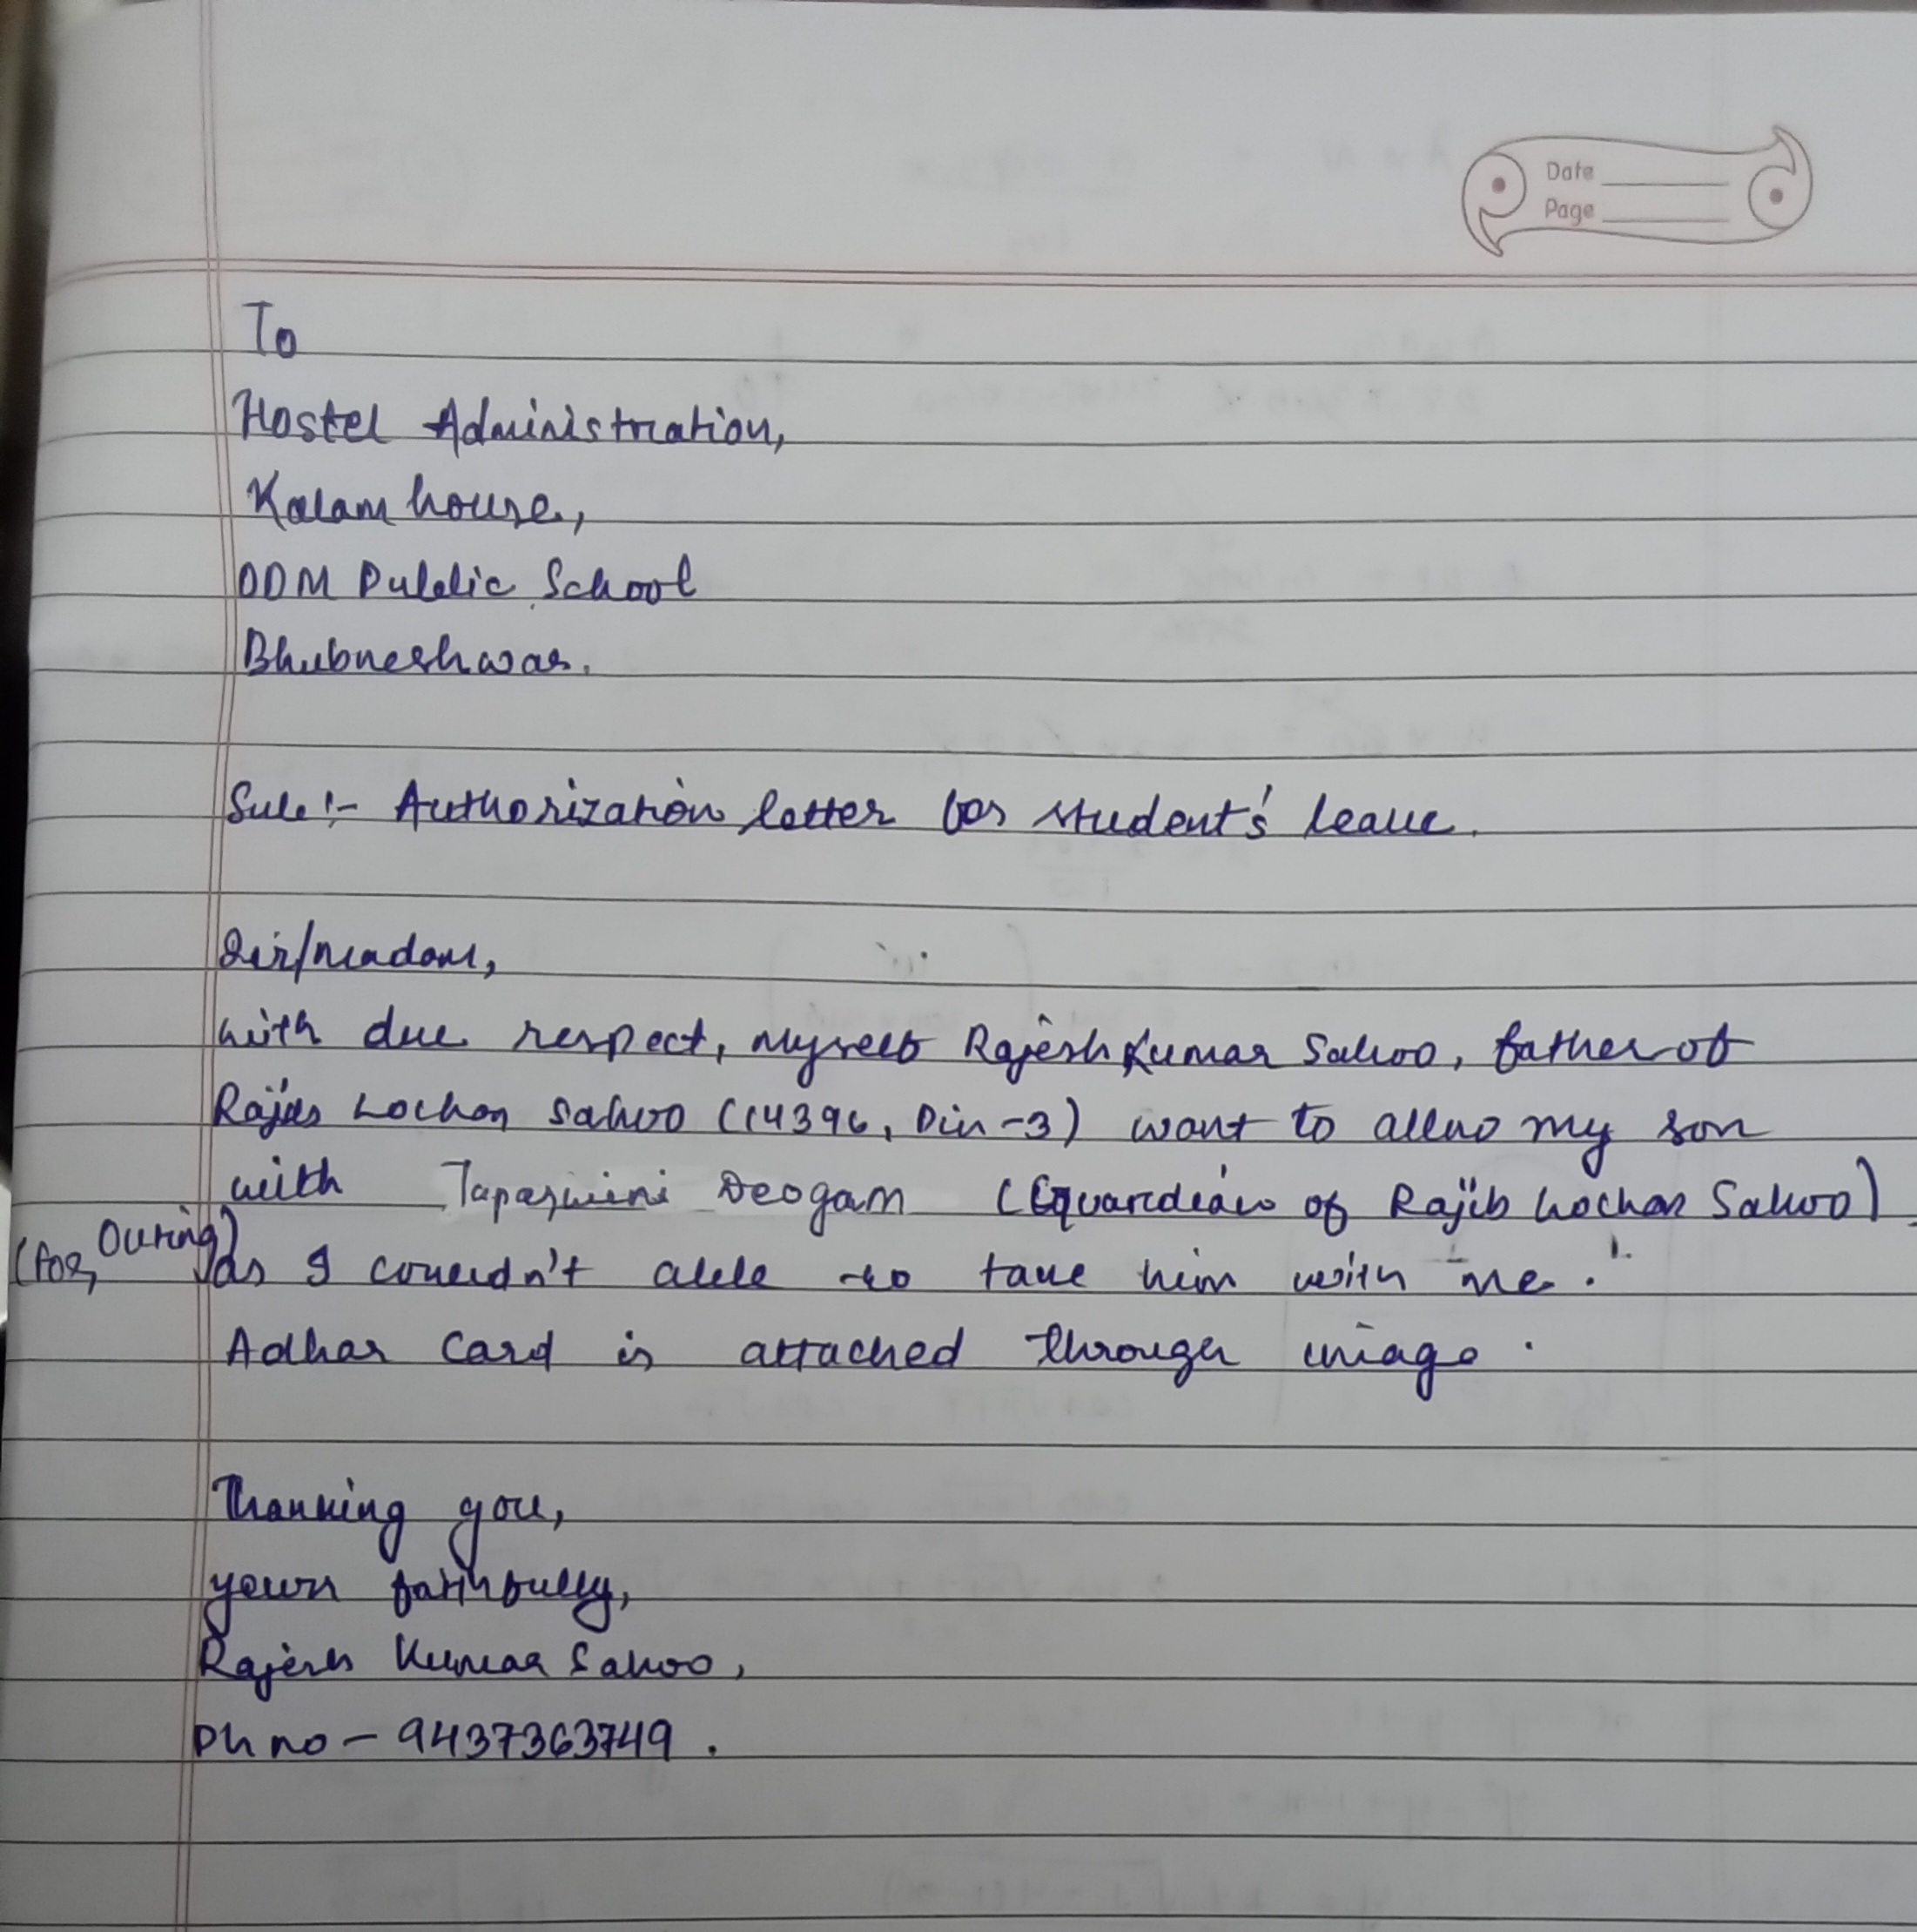 Date
Page
To
Hostel Administration,
Kalam house,
ODM Public School
Bhubneshwar.
Sub:- Authorization letter for student's leave.
Sir/madam,
with due respect, Myself Rajesh Kumar Sahoo, father of
Lochan Sahoo (14396, Din-3) want to allow my son
with Tapaswini Deogam (Guardian of Rajib Lochan Sahoo)
(for, Outing) as I couldn't able to take him with me.
Adhar Card is attached through image.
Thanking you,
yours faithfully,
Rajesh Kumar Sahoo,
Ph no - 9437363749.